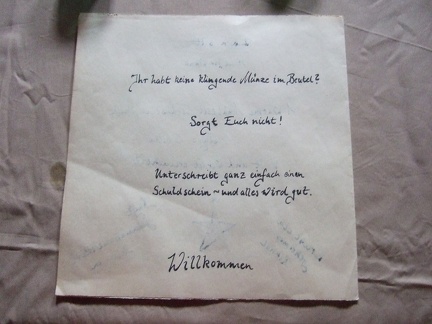 Ihr habt keine klingende Münze im Beutel?
Sorgt Euch nicht!
Unterschreibt ganz einfach einen
Schuldschein ~ und alles wird gut.
Willkommen